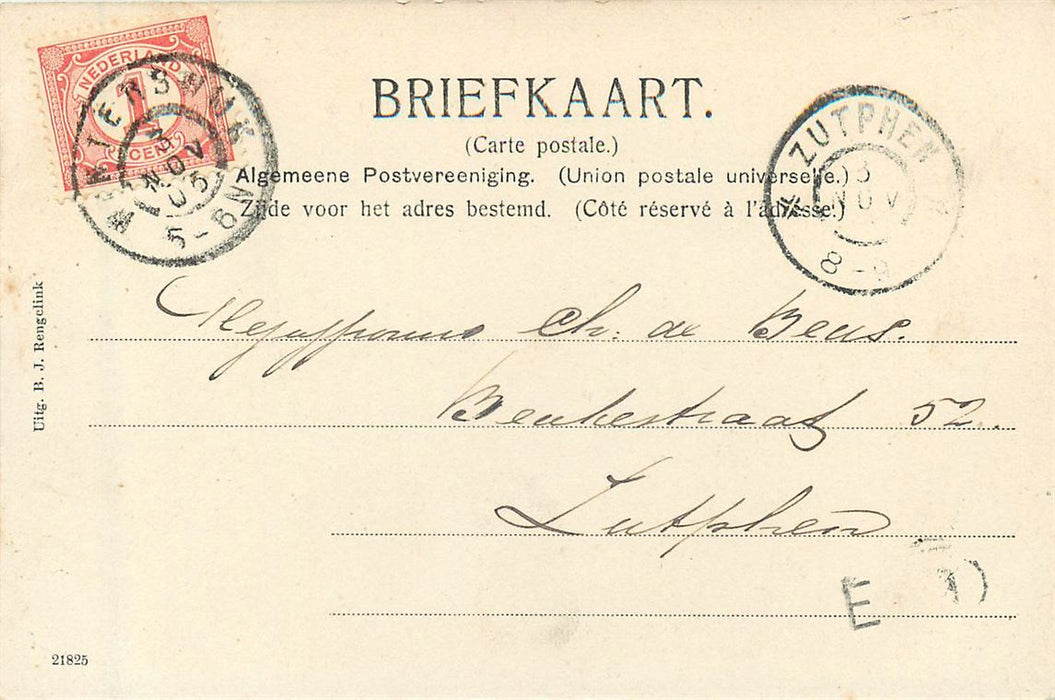 NEDERLAND
1
CENT
WINTERSWIJK
3 NOV 05
5-6N
BRIEFKAART.
(Carte postale.)
Algemeene Postvereeniging. (Union postale universelle.)
Zijde voor het adres bestemd. (Côté réservé à l'adresse.)
ZUTPHEN
3 NOV
8-9
Mejuffrouw Ch. de Beus.
Beukestraat 52.
Zutphen
E
Uitg. B. J. Rengelink
21825